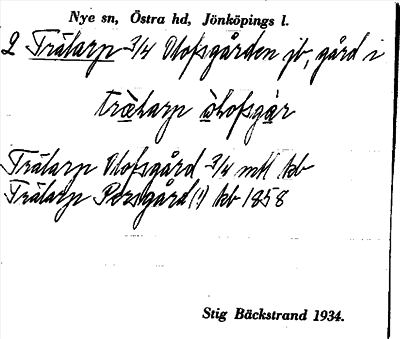 Nye sn, Östra hd, Jönköpings l.
2 Trälarp 3/4 Olofsgården jb, gård i
trälarp òlofsgàr
Trälarp Olofsgård 3/4 mtl kb
Trälarp Persgård(!) kb 1858
Stig Bäckstrand 1934.